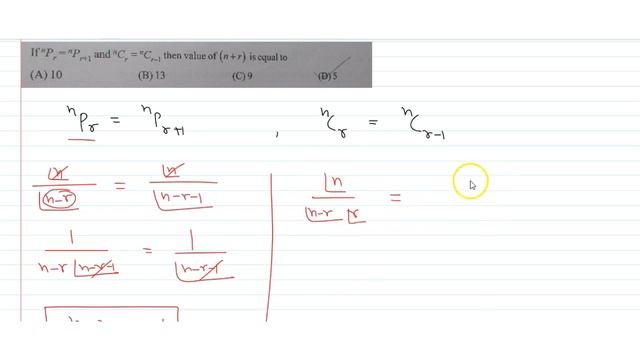 If ⁿPᵣ = ⁿPᵣ₊₁ and ⁿCᵣ = ⁿCᵣ₋₁ then value of (n + r) is equal to
(A) 10 (B) 13 (C) 9 (D) 5
ⁿPᵣ = ⁿPᵣ₊₁ , ⁿCᵣ = ⁿCᵣ₋₁
|n / |n-r = |n / |n-r-1
|n / |n-r |r =
1 / n-r |n-r-1 = 1 / |n-r-1